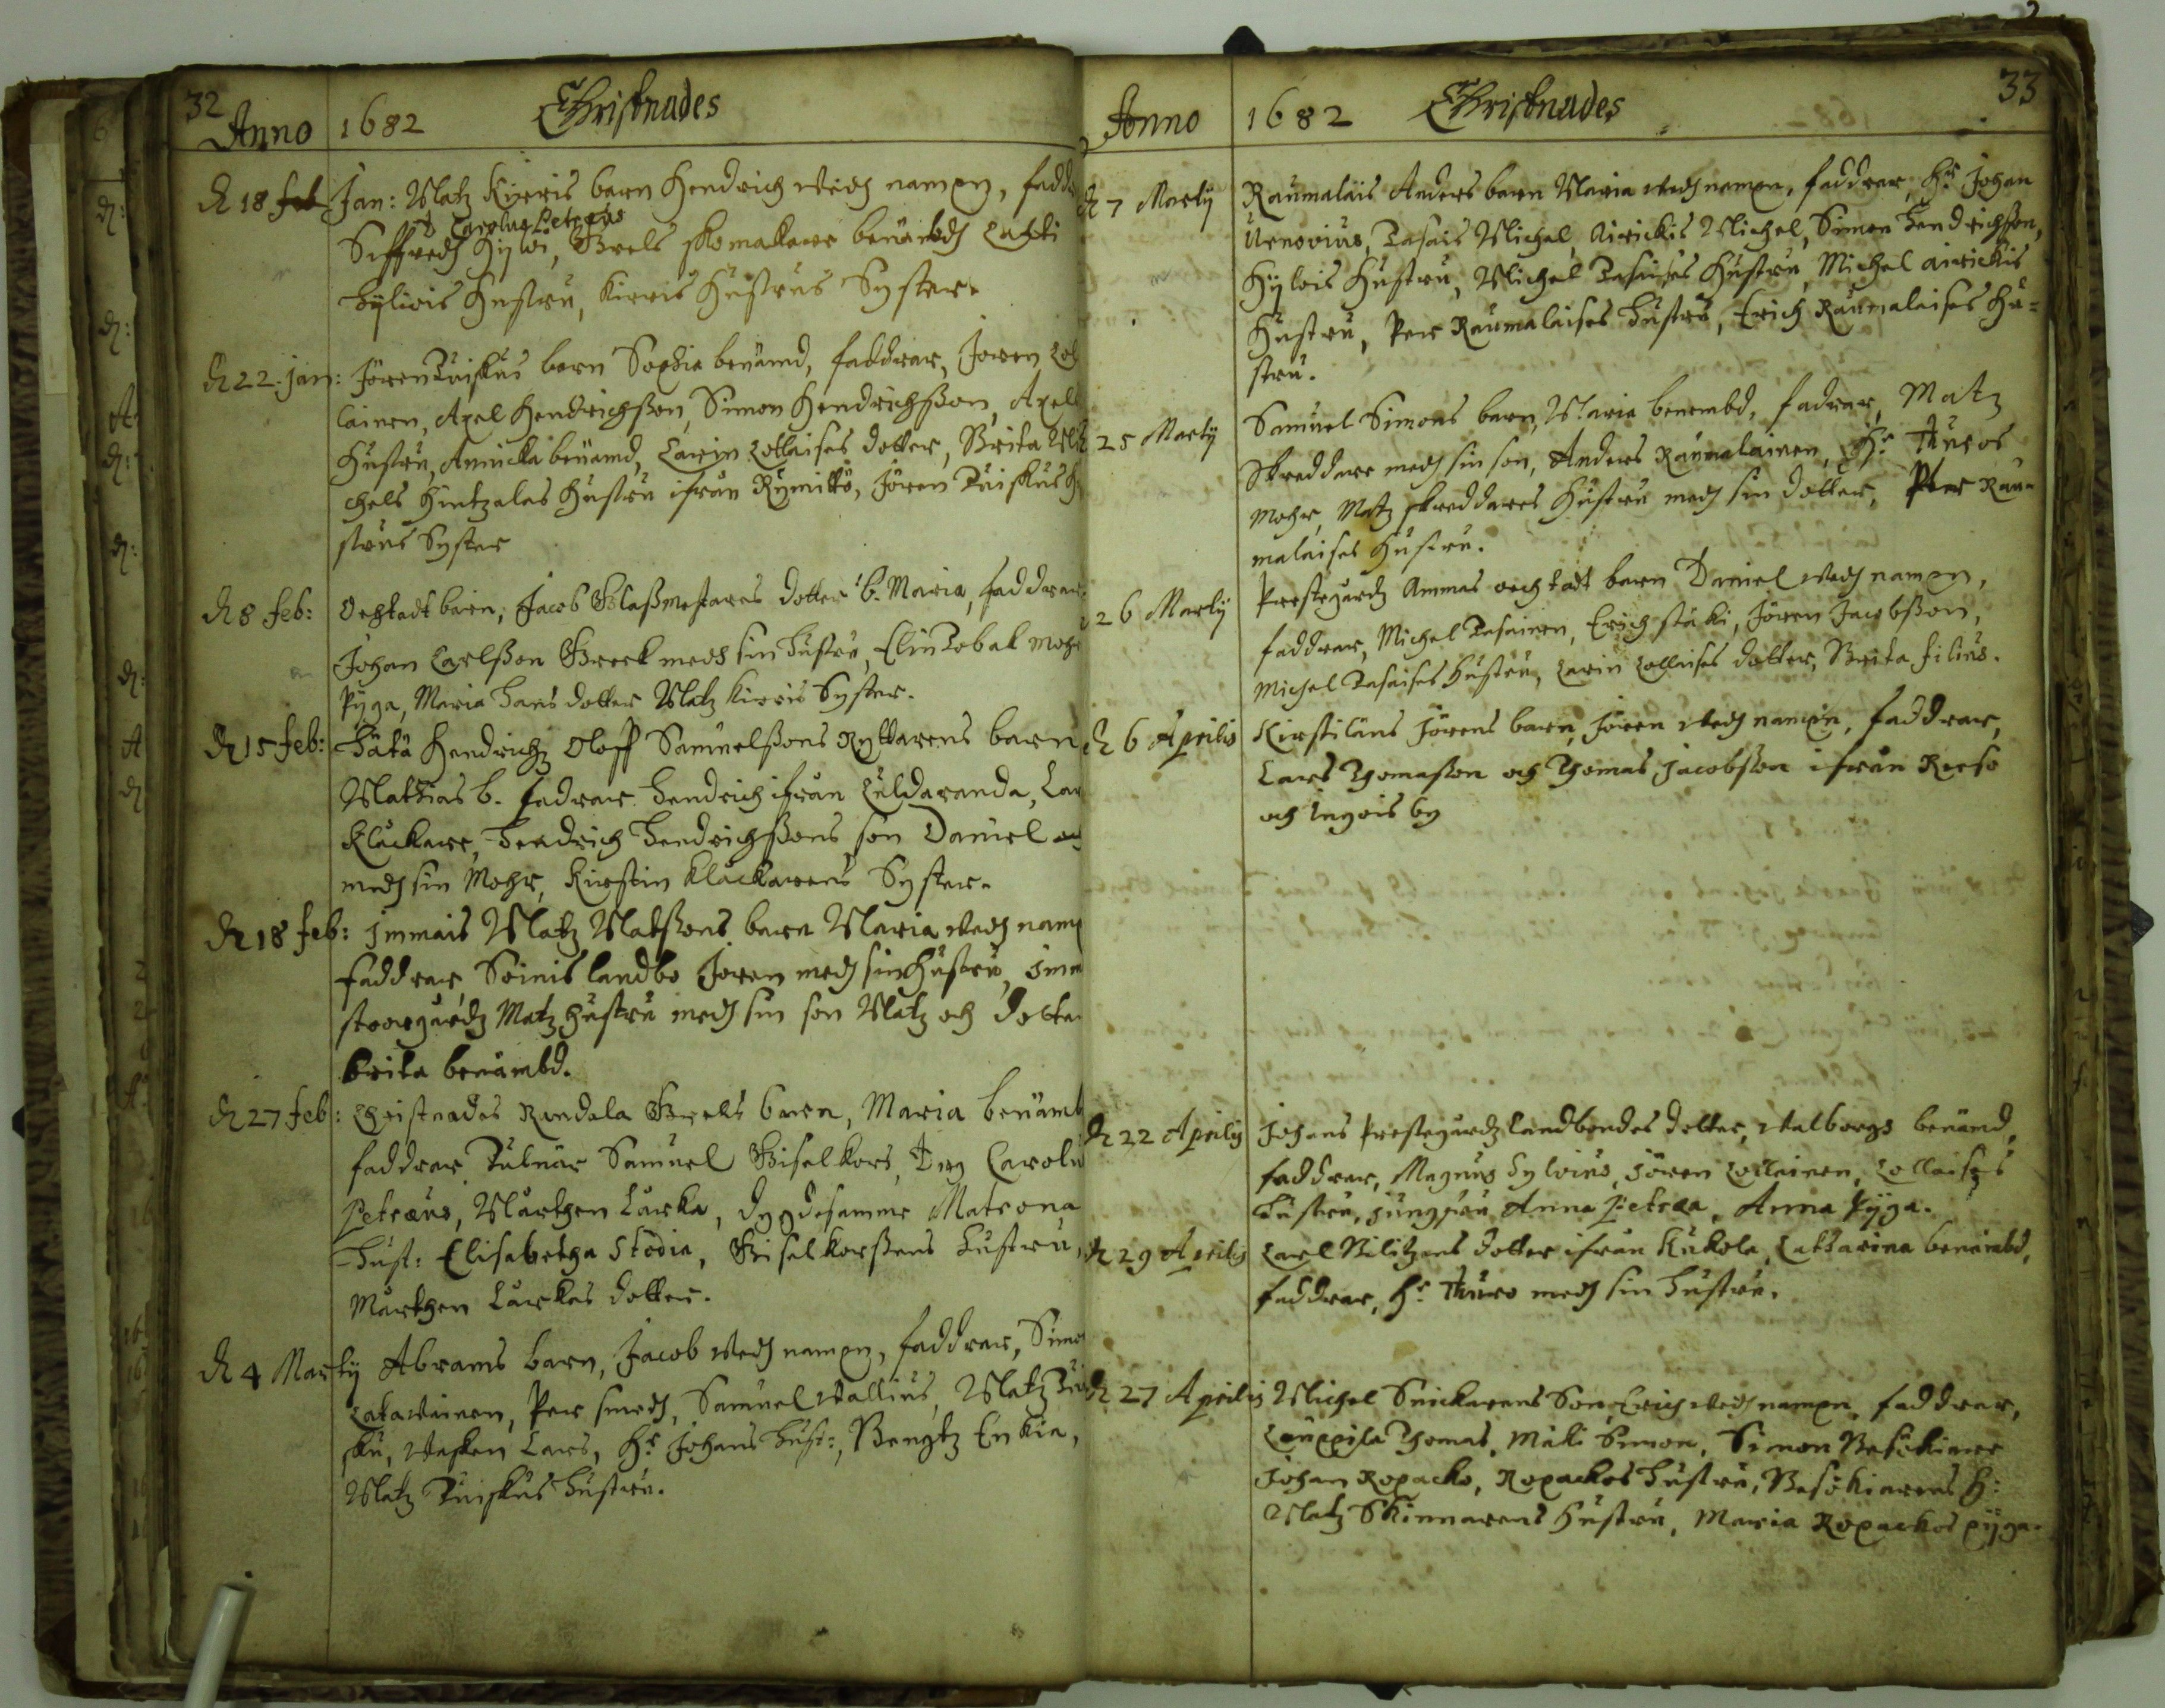 32
Anno 1682 Christnades
d 18 feb Jan: Matz Kirris barn Hendrich wedh namen, faddr
D Carolus Petræus
Siffredh Hylvi, Brels skomakare benämbdh
Hylivis Hustru, Kirris Hustrus Syster.
d 22 jan: Jören Tuiskus barn Sophia benämd, faddrar, Joren Lol
lainen, Axel Hendrichsson, Simon Hendrichsson, Axels
Hustru, Annicka benämd, Carin Lollaises dotter, Brita Mi
chels Hintzalas Hustru ifrån Rymitlö, Jören Tuiskus H
strus Syster
d 8 feb: Oechtadt barn, Jacob Glassmestares dotter b. Maria, faddrar
Johan Carlsson Breck medh sin Hustru, Elin Tobak Mohr
Pyga, Maria Hans dotter Matz Kirris Syster.
d 15 feb: Hätä Hendrichz Oloff Samuelssons Ryttarens barn
Mathias b. fadrar Hendrich ifrån Luldaranda, Lar
Kluckare, Hendrich Hendrichssons son Daniel och
medh sin Mohr, Kirstin Klackarens Syster.
d 18 feb: Immais Matz Matssons barn Maria wedh namn
faddrar, Soinis landbo Joren medh sin Hustru, Imm
storegårdz Matz Hustru medh sin son Matz och dotter
brita benämbd.
d 27 feb: Christnades Randala Brels barn, Maria benämb
faddrar Tulnär Samuel Giselkors, Carolu
Petræus, Mårthen Lurka, dygdesamme Matrona
Hust: Elisabetha Stodia, Giselkorssens Hustru,
Mårthen Lurkas dotter.
d 4 Martij Abrams barn, Jacob wedh namen, faddrar, Simo
Latawainen, Per smedh, Samuel Wallius, Matz Tui
sku, Wasken Lars, Hr Johans Hust:, Bengtz Enkia,
Matz Tuiskus Hustru.
33
Anno 1682 Christnades
d 7 Martij Raumalais Anders barn Maria wedh namen, faddrar, Hr Johan
Urnovius, Tasais Michel, Airickis Michel, Simon Hendrichsson,
Hylvis Hustru, Michel Tasaises Hustru, Michel airickis
Hustru, Per Raumalaises Hustru, Erich Raumalaises Hu=
stru.
25 Martij Samuel Simons barn, Maria benembd, fadrar, Matz
Skreddare medh sin son, Anders Raumalainen, Hr Thuros
Mohr, Matz skreddares Hustru medh sin dotter, Per Rau=
malaises Hustru.
26 Martij Prestegårdz Ammas oechtadt barn Daniel wedh namen,
faddrar, Michel Tasainen, Erich stäki, Jören Jacobsson,
Michel Tasaises Hustru, Carin Lollaises dotter, Brita filius.
d 6 Aprilis Kirstiläns Jörens barn, Jören wedh namen, faddrar,
Lars Thomasson och Thomas Jacobsson ifrån Rerso
och Ingois by
d 22 Aprilis Johans Prestegårdz landbondes dotter, Walborgs benämd,
faddrar, Magnus Hylvius, Jören Lollainen, Lollaises
Hustru, jungfru Anna Petræa, Anna Pyga.
d 29 Aprilis Carl Bilitzens dotter ifrån Kukola, Catharina benämbd,
faddrar, Hr Thuro medh sin Hustru.
d 27 Aprilis Michel Snickarens Son Erich wedh namen, faddrar,
Lauxxila Thomas, Mäki Simon, Simon Besökiare
Johan Ropacko, Ropackos Hustru, Besökiarens H:
Matz Skinnarens Hustru, Maria Ropackos pyga.